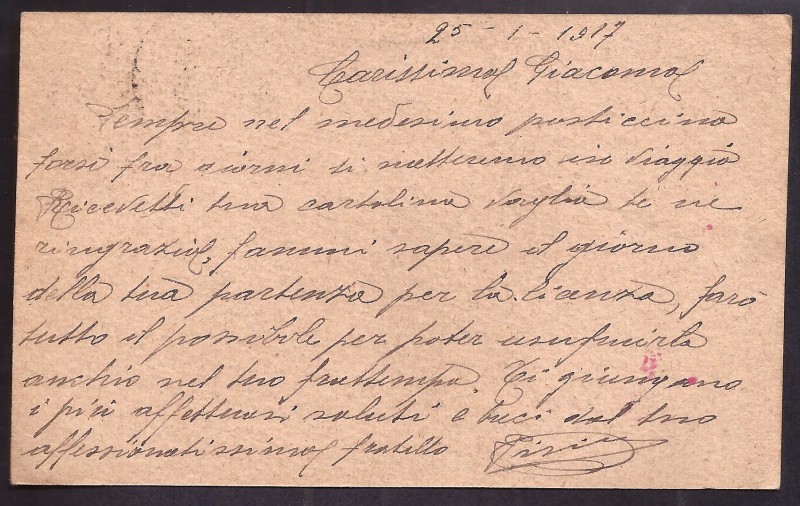 25 - 1 - 1917
Carissimo Giacomo
Sempre nel medesimo posticcino
forsi fra giorni si metteremo in viaggio
Ricevetti tua cartolina vaglia te ne
ringrazio, fammi sapere il giorno
della tua partenza per la licenza, farò
tutto il possibile per poter usufruirla
anchio nel tuo frattempo. Ti giungano
i più affettuosi saluti e baci dal tuo
affessionatissimo fratello